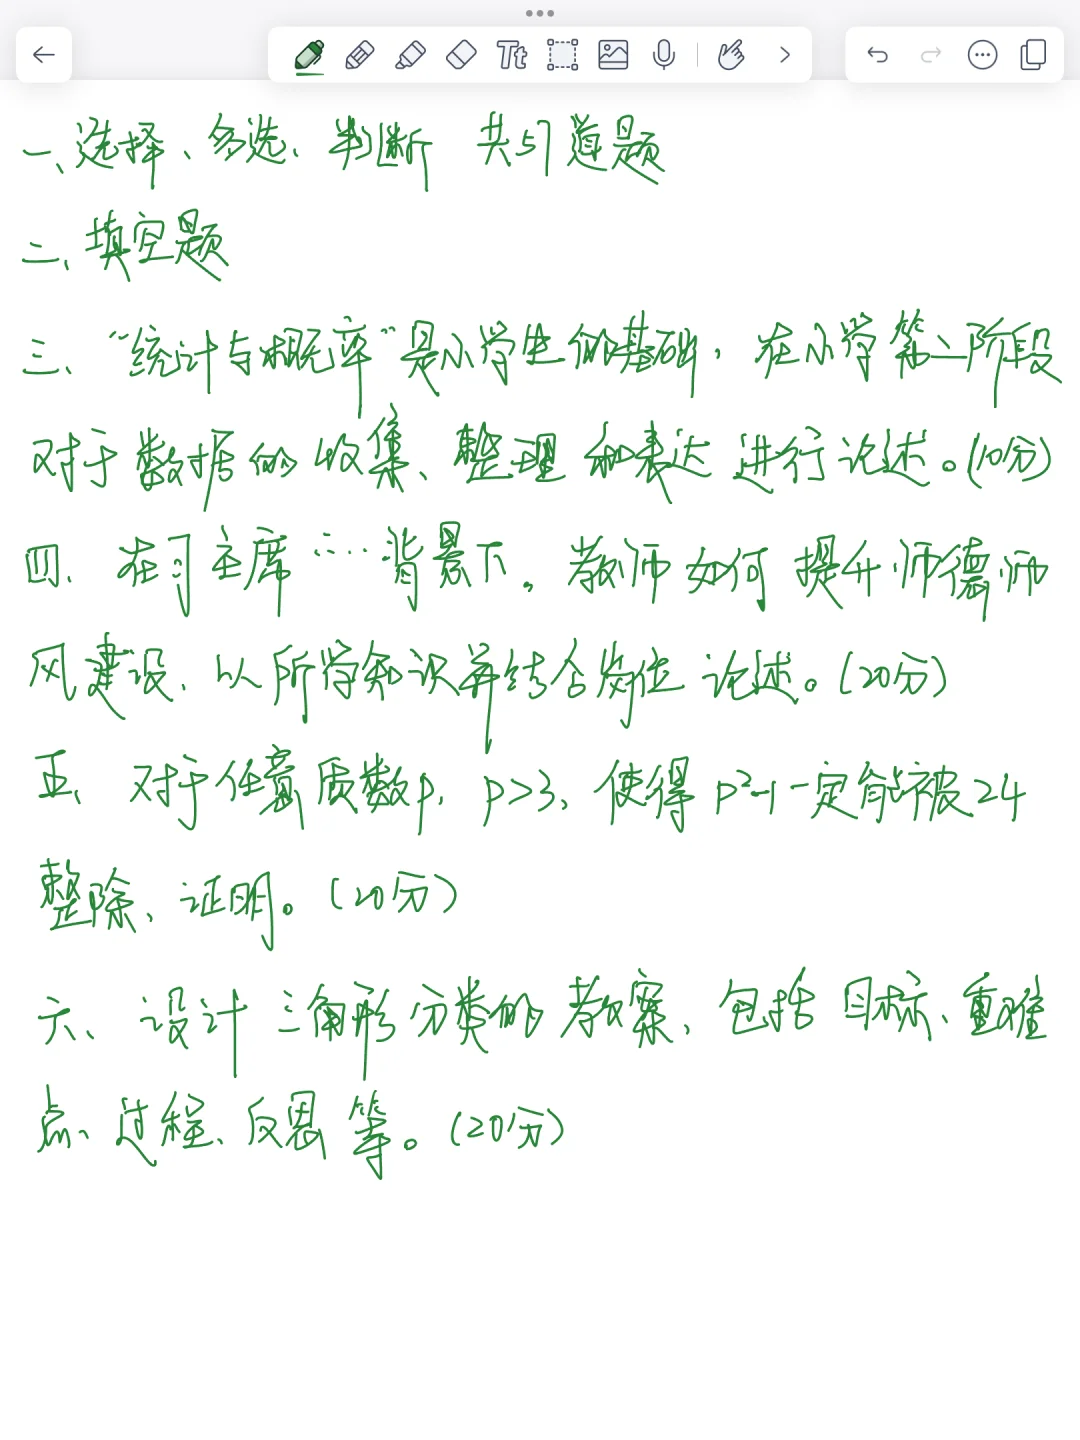 Tt
一、选择、多选、判断 共51道题
二、填空题
三、“统计与概率”是小学生的基础，在小学第二阶段
对于数据的收集、整理和表达进行论述。(10分)
四、在习主席……背景下。教师如何提升师德师
风建设、以所学知识并结合岗位论述。(20分)
五、对于任意质数p，p>3、使得p²-1一定能被24
整除、证明。(20分)
六、设计三角形分类的教案、包括目标、重难
点、过程、反思等。(20分)